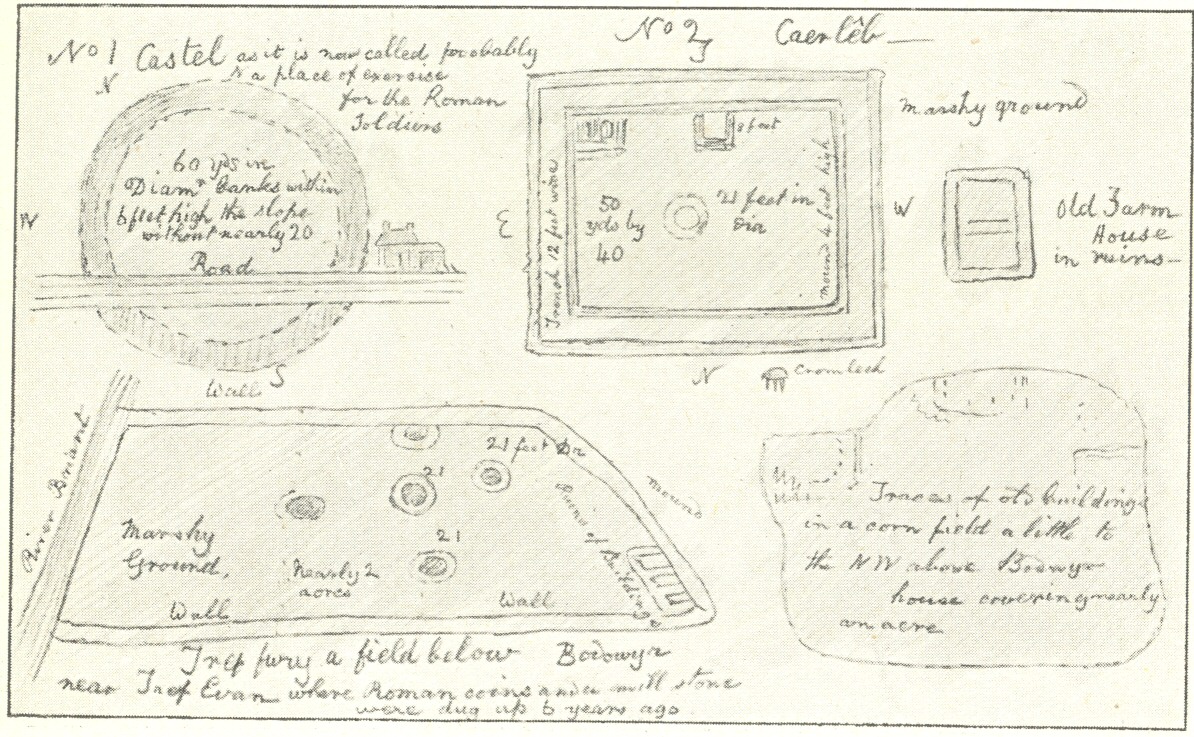 No 1 Castel as it is now called probably
a place of exercise
for the Roman
Soldiers
N
60 yds in
Diamr banks within
6 feet high the slope
without nearly 20
Road
W
S
No 2
S
Caerlêb
E
Trench 12 feet wide
8 feet
50
yds by
40
21 feet in
dia
mound 4 feet high
W
N
Marshy ground
Old Farm
House
in ruins
Cromlech
River Briant
Wall
21 feet Dr
21
21
Marshy
Ground.
Nearly 2
acres
Wall
Wall
Ruins of Buildings
mound
Tref fury a field below Bodowyr
near Tref Evan where Roman coins and a mill stone
were dug up 6 years ago
Traces of old buildings
in a corn field a little to
the NW above Bodowyr
house covering nearly
an acre